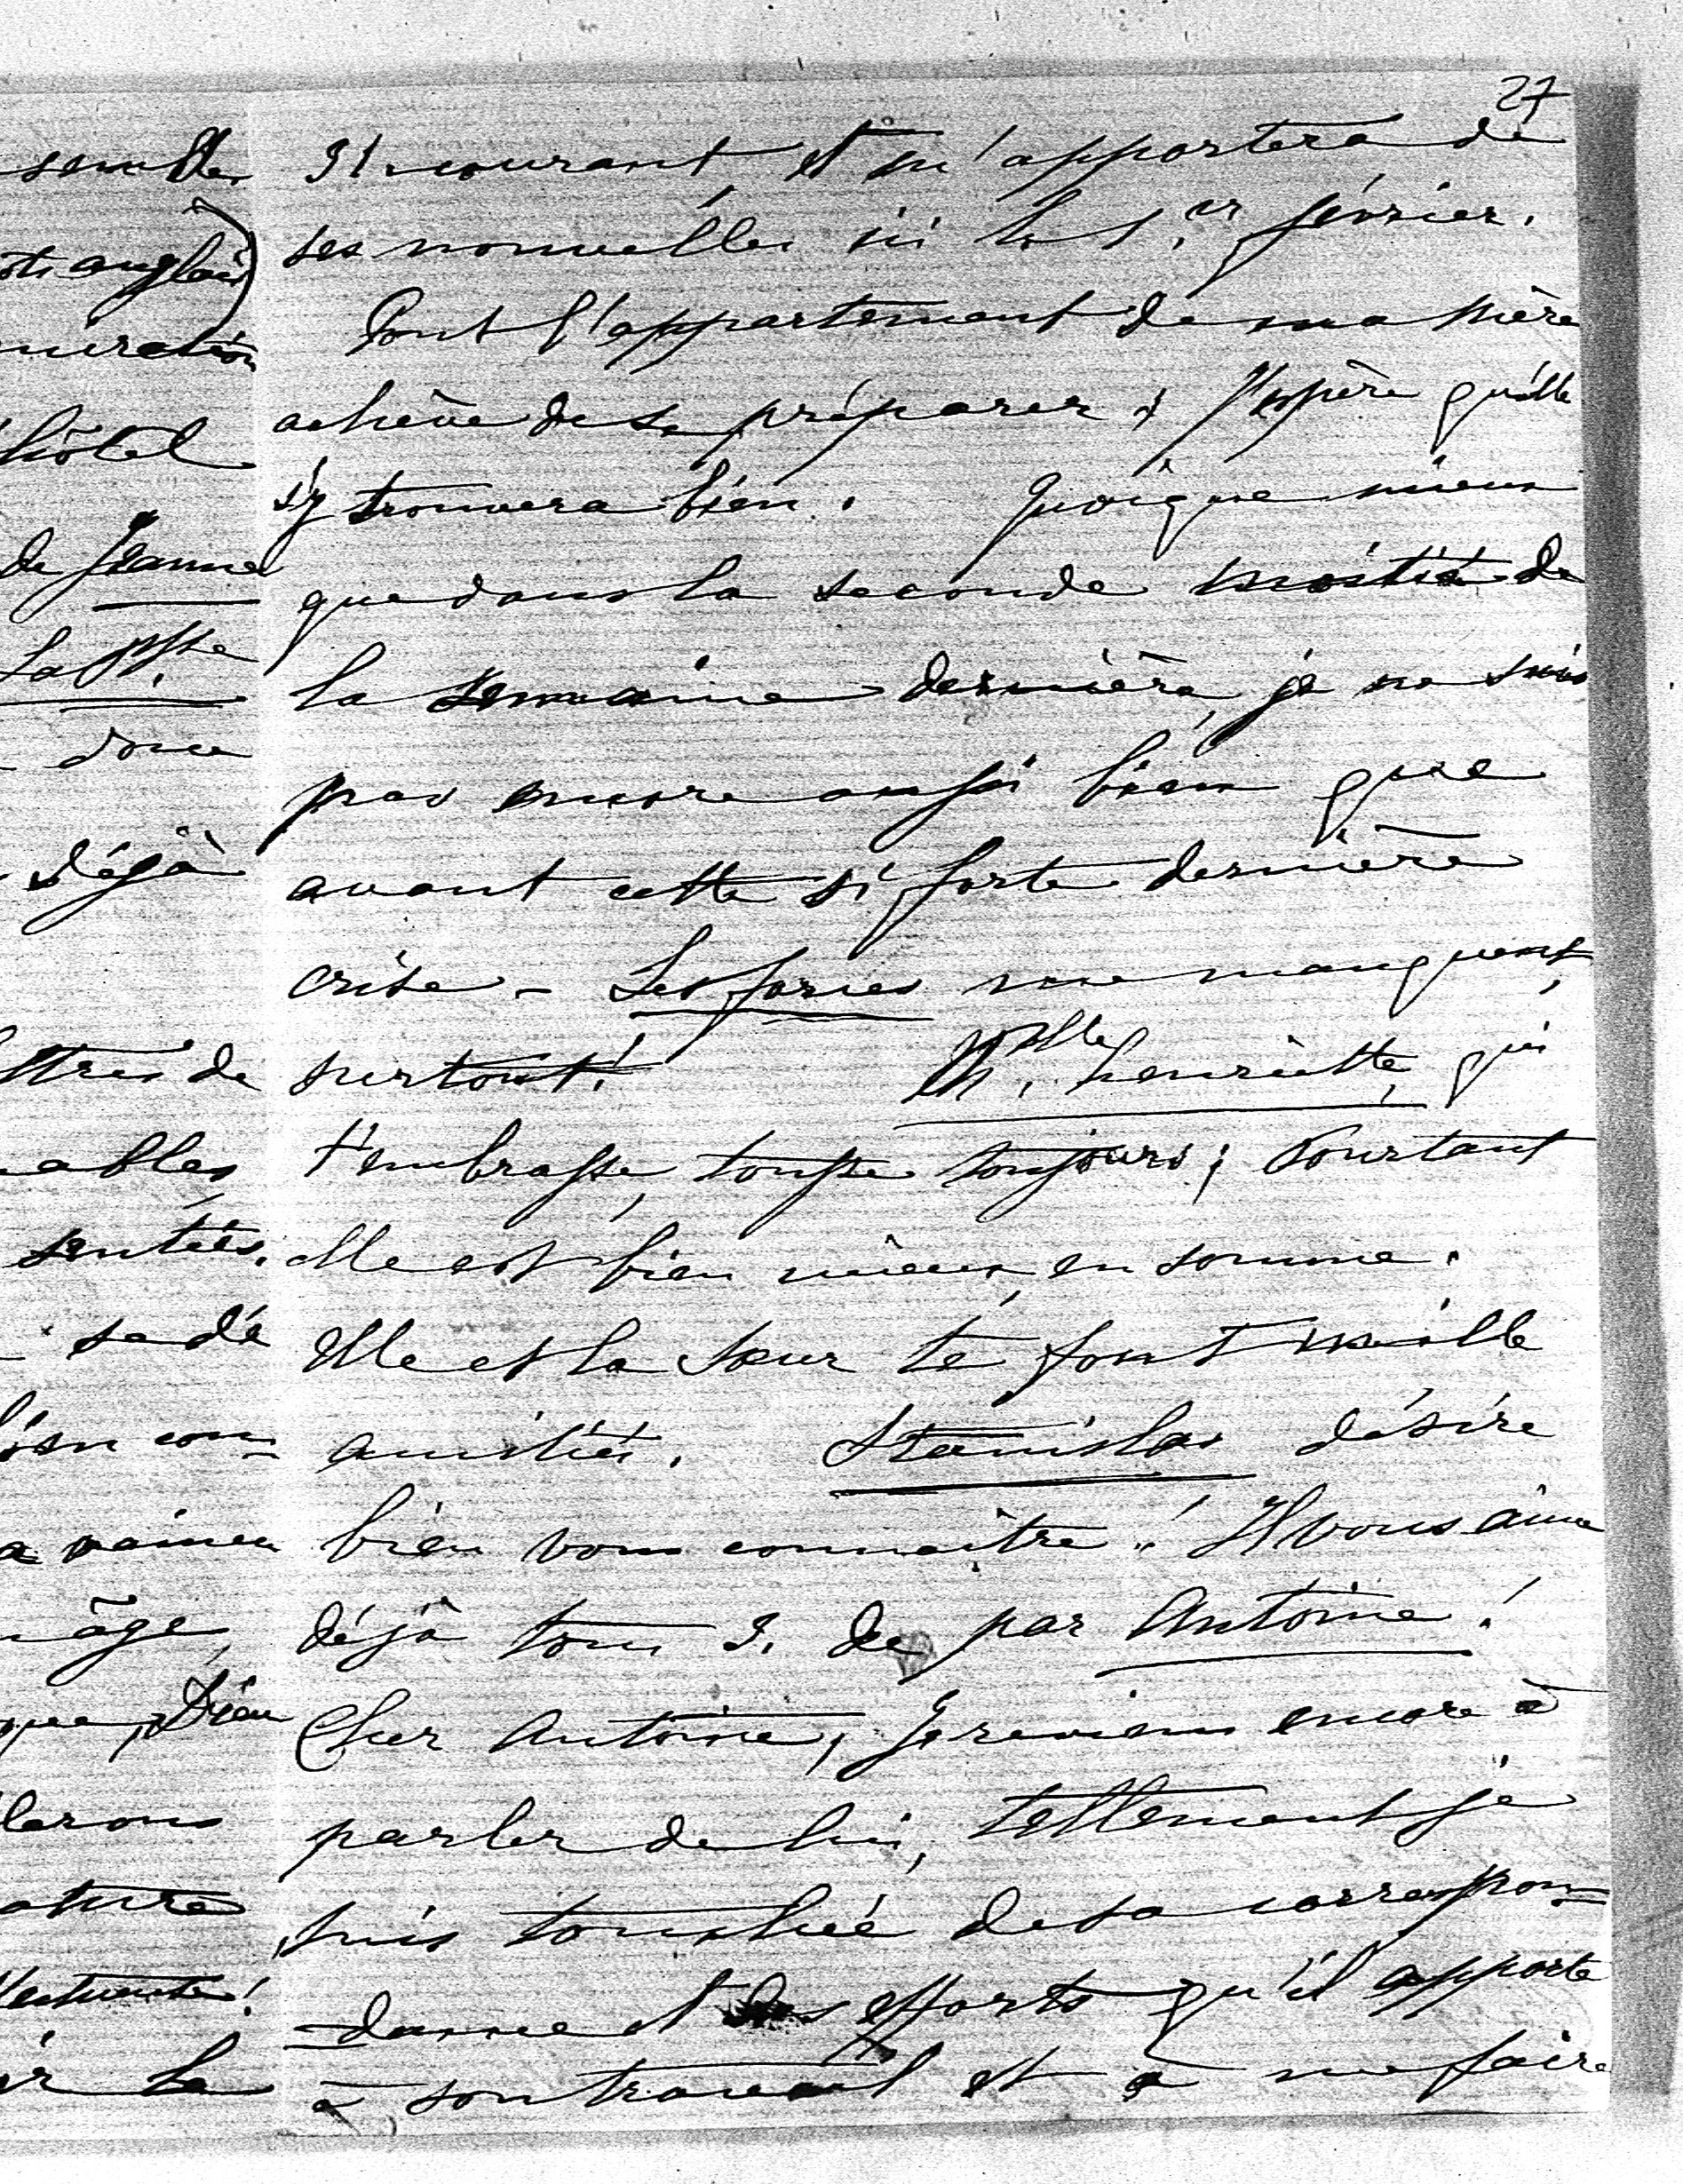 27
31 courant et m'apportera de
ses nouvelles ici le 1.er février.
Tout l'appartement de ma mère
achève de se préparer ; j'espère qu'elle
s'y trouvera bien. Quoique mieux
que dans la seconde moitié de
la semaine dernière, je ne suis
pas encore aussi bien que
avant cette si forte dernière
crise – Les forces me manquent,
surtout! M.elle Henriette, qui
t'embrasse, tousse toujours ; Pourtant
elle est bien mieux, en somme.
Elle et la Sœur te font mille
amitiés. Stanislas désire
bien vous connaître! Il vous aime
déjà tous 3. de par Antoine!
Cher Antoine, je reviens encore à
parler de lui, tellement je
suis touchée de sa correspon=
=dance et des efforts qu'il apporte
à son travail et à me faire
semble
anglais)
hôtel
de Jeanne
La Ppsse
donc
déjà
ttres de
ables
sentées.
se dé
con=
âge,
que, Dieu
lerons
ature
la